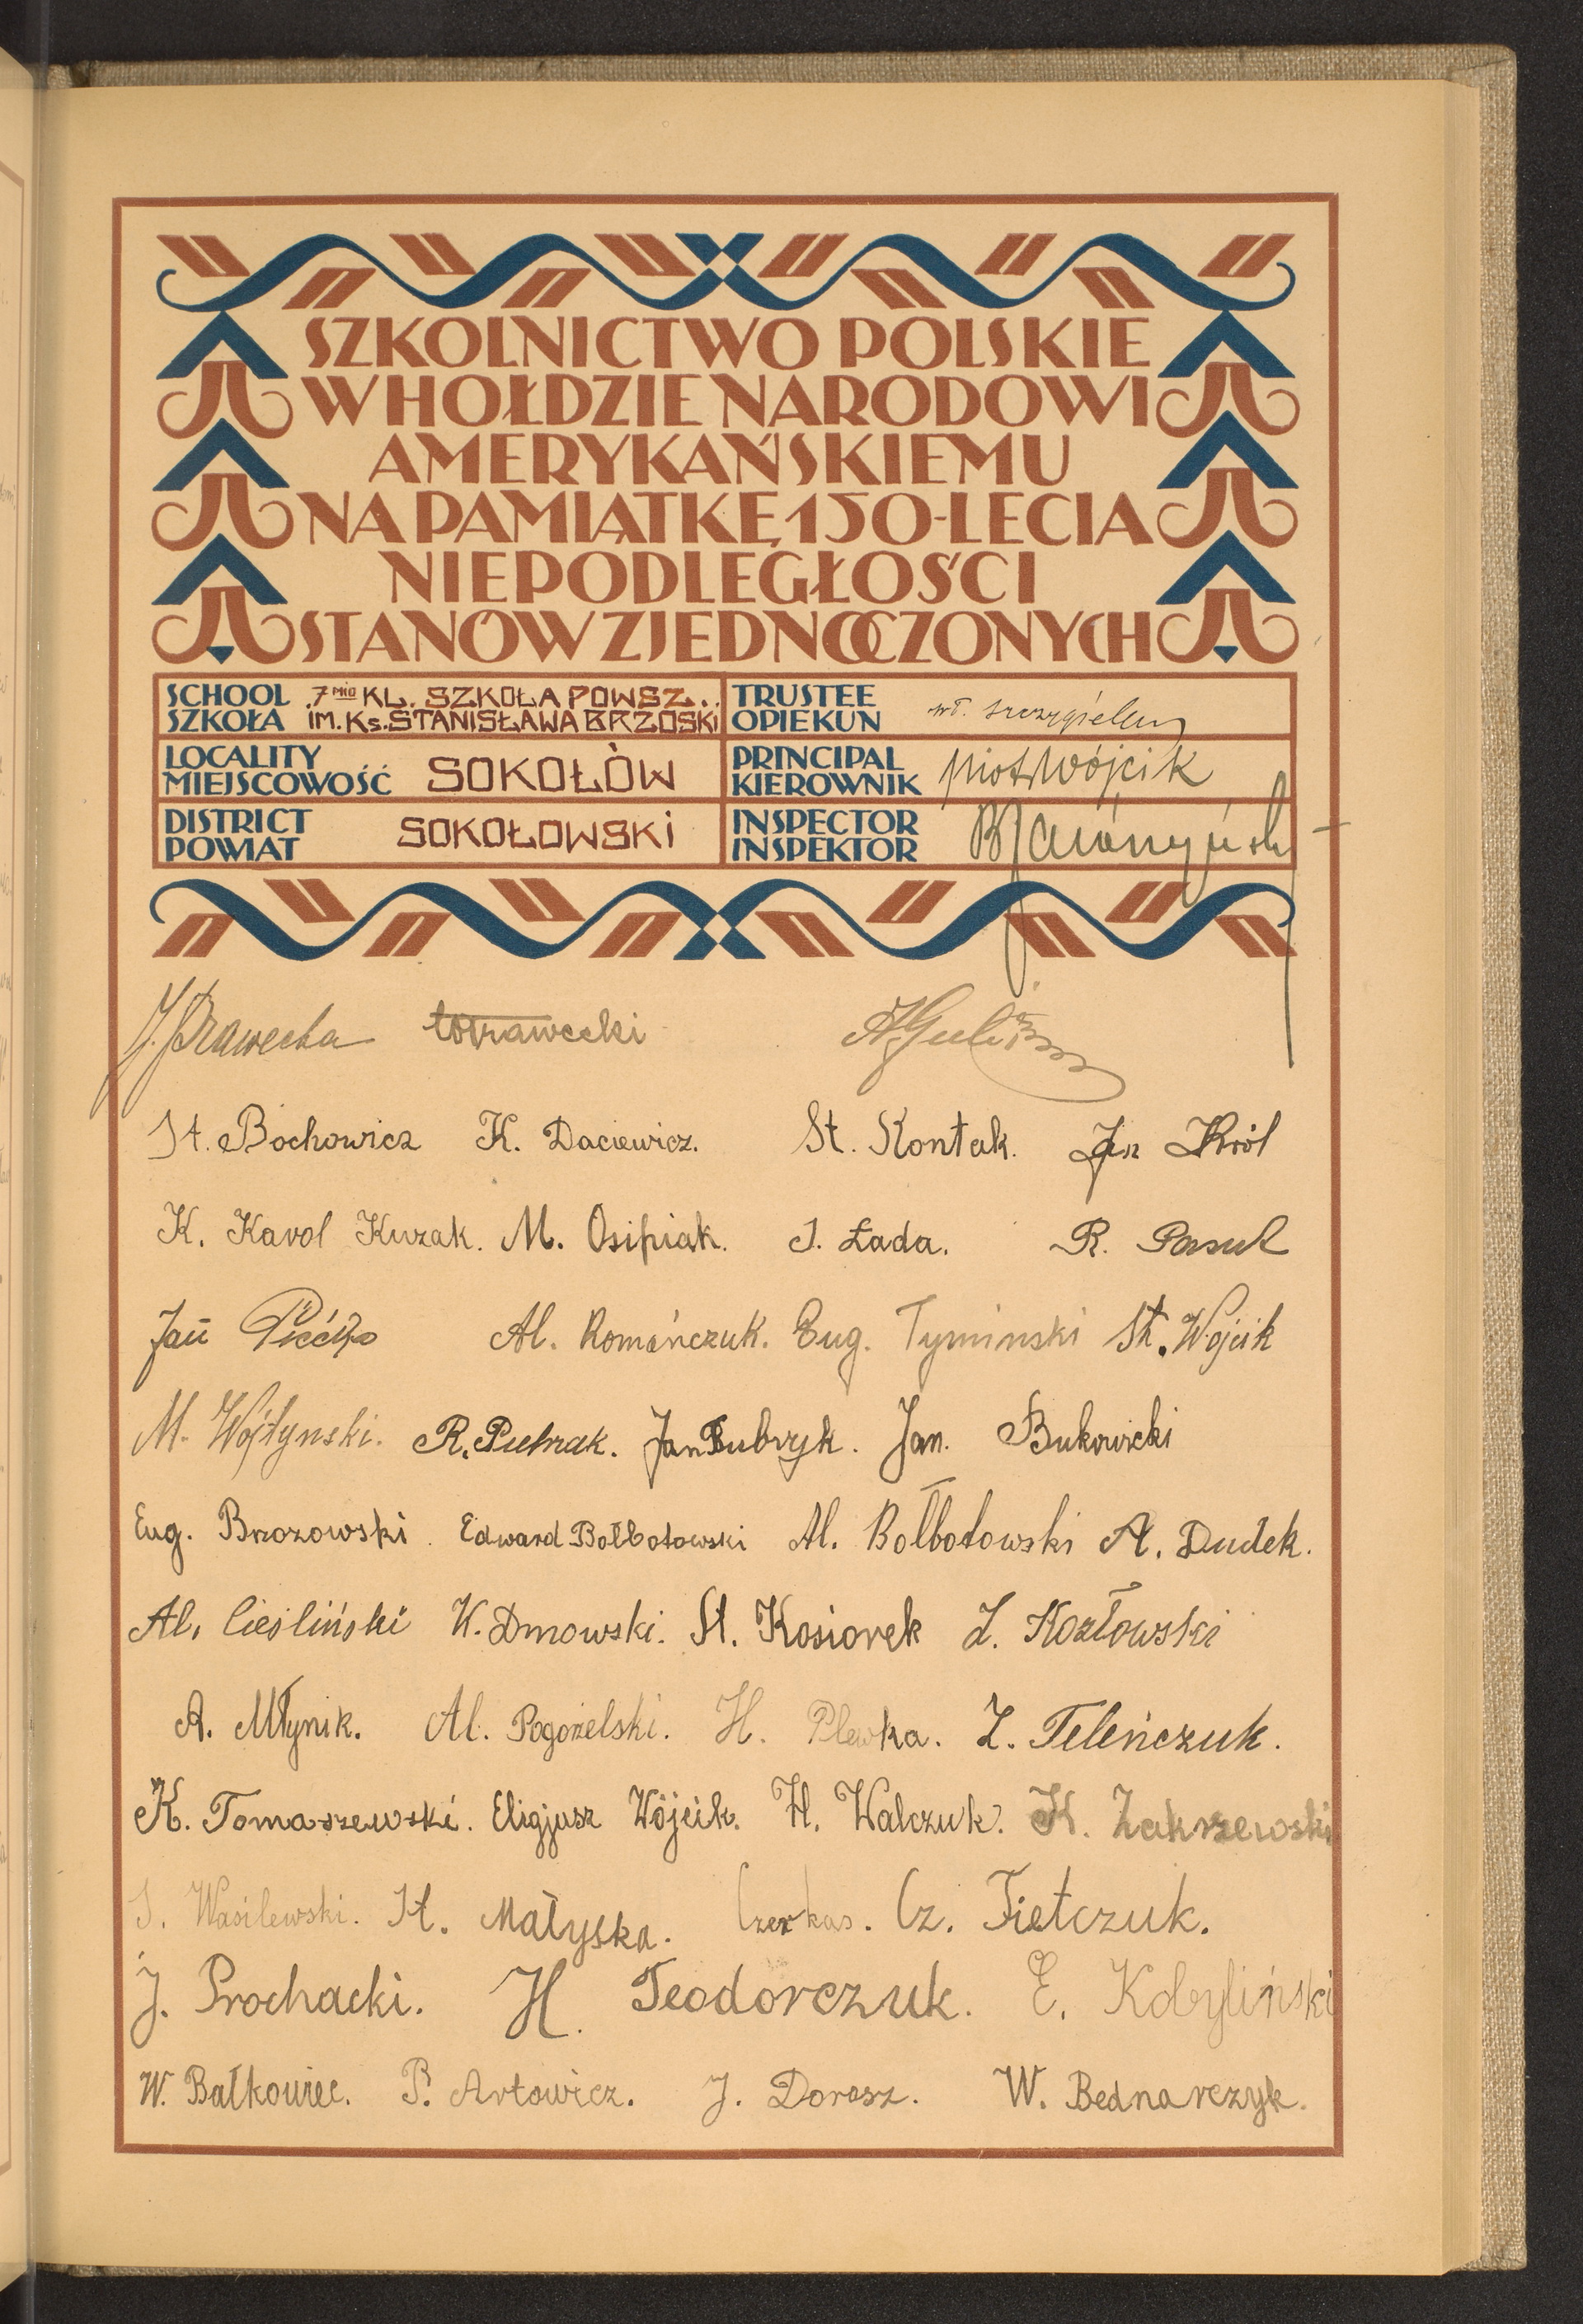 SZKOLNICTWO POLSKIE
W HOŁDZIE NARODOWI
AMERYKAŃSKIEMU
NA PAMIĄTKĘ 150-LECIA
NIEPODLEGŁOŚCI
STANÓW ZJEDNOCZONYCH
SCHOOL 7MIO KL. SZKOŁA POWSZ..
SZKOŁA IM. Ks. STANISŁAWA BRZÓSKI
TRUSTEE
OPIEKUN wł.
LOCALITY
MIEJSCOWOŚĆ SOKOŁÓW
PRINCIPAL
KIEROWNIK Piotr Wójcik
DISTRICT
POWIAT SOKOŁOWSKI
INSPECTOR
INSPEKTOR
J. Prawecka
St. Bochowicz K. Daciewicz. St. Kontak. Jan Król
K. Karol Kuzak. M. Osipiak. J. Łada. R. Pasuk
Jan Al. Romańczuk. Eug. Tyminski St. Wojcik
M. Wojtynski. R. Pietrzak. Jan Bubryk. Jan. Bukowicki
Eug. Brzozowski. Edward Bołbotowski Al. Bołbotowski A. Dudek.
Al. Cieśliński K. Dmowski. St. Kosiorek Z. Kozłowski
A. Młynik. Al. Pogorzelski. H. Plewka. Z. Teleńczuk.
K. Tomaszewski. Eligjusz Wójcik. H. Walczuk. K. Zakrzewski
S. Wasilewski. St. Małyska. Czerkas. Cz. Fietczuk.
J. Prochacki. H. Teodorczuk. E. Kobyliński
W. Bałkowiec. P. Artowicz. J. Dorosz. W. Bednarczyk.